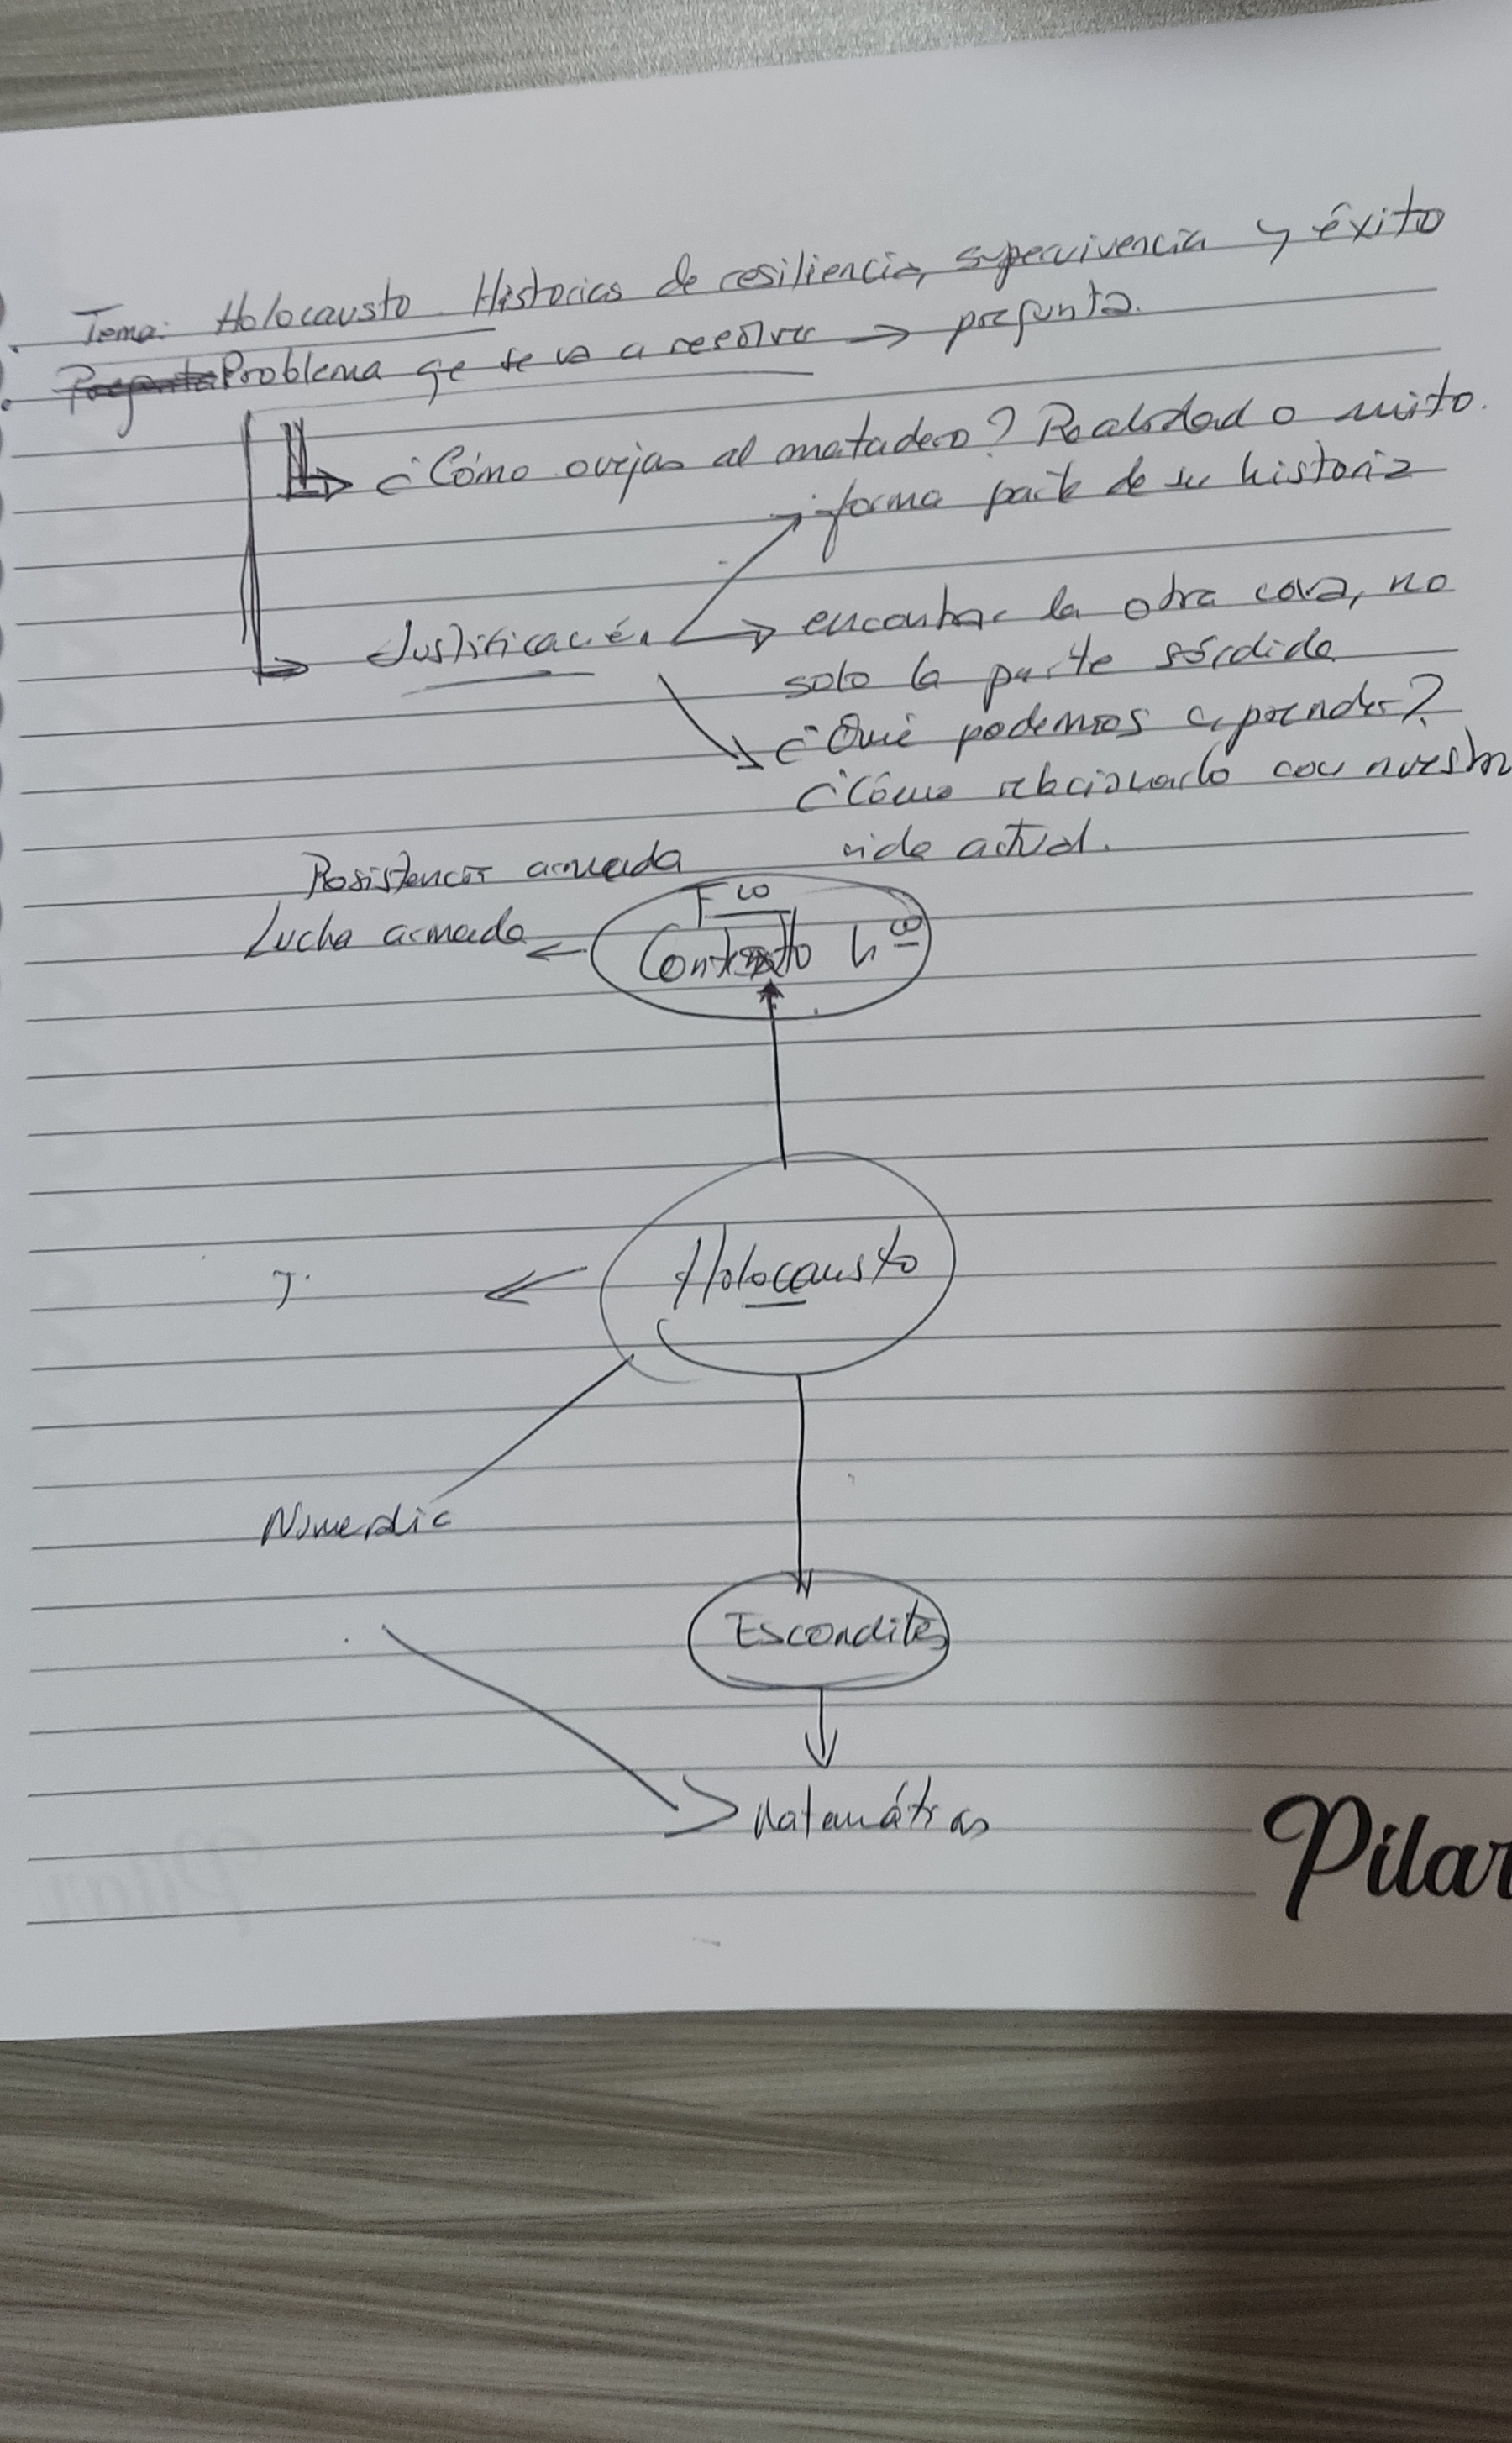 Tema: Holocausto. Historias de resiliencia, supervivencia y éxito
Problema qe se va a resolver → pregunta.
¿Cómo ovejas al matadero? Realidad o mito.
forma parte de su historia
Justificación
encontrar la otra cara, no
solo la parte sórdida
¿Qué podemos aprender?
¿Cómo relacionarlo con nuestra
vida actual.
Resistencia armada
Lucha armada
Contexto hco
Holocausto
Escondites
Matemáticas
Pilar